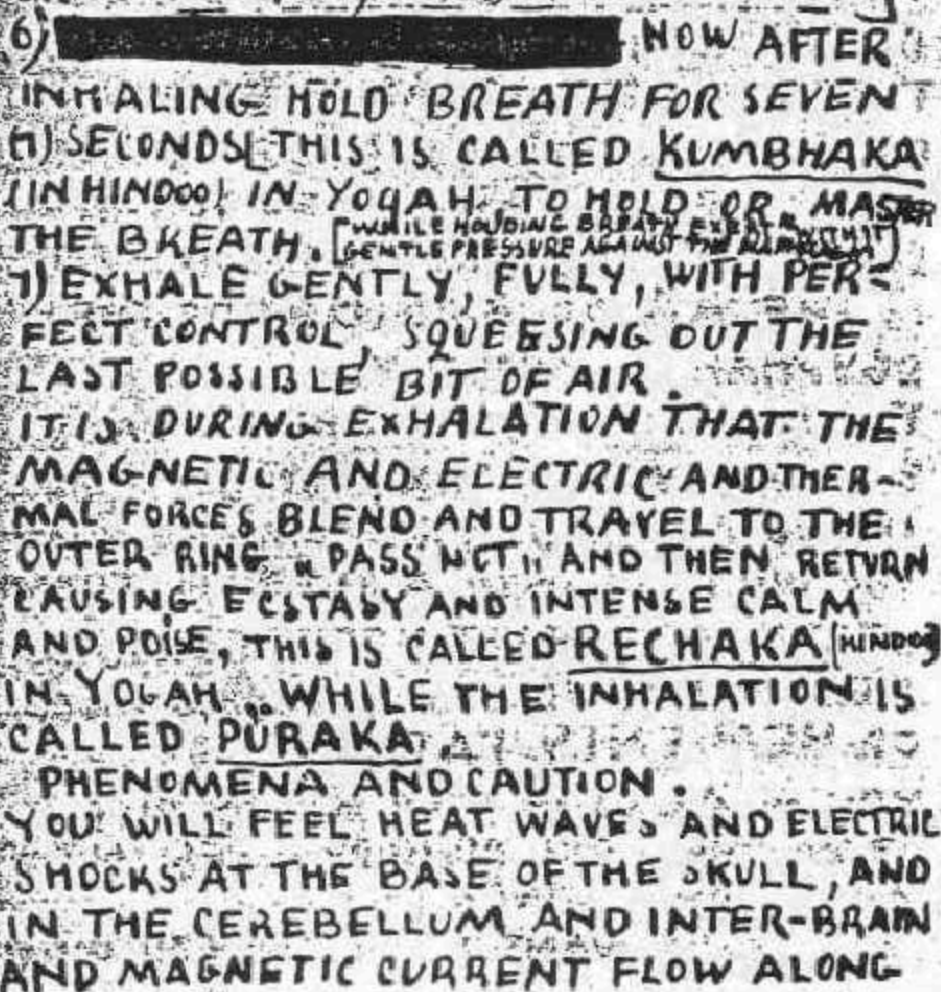 6) NOW AFTER
INHALING HOLD BREATH FOR SEVEN
(7) SECONDS[THIS IS CALLED KUMBHAKA
(IN HINDOO) IN YOGAH TO HOLD OR MASTER
THE BREATH. [WHILE HOLDING BREATH EXERT
GENTLE PRESSURE AGAINST THE
7) EXHALE GENTLY, FULLY, WITH PER-
FECT CONTROL, SQUEESING OUT THE
LAST POSSIBLE BIT OF AIR.
IT IS DURING EXHALATION THAT THE
MAGNETIC AND ELECTRIC AND THER-
MAL FORCES BLEND AND TRAVEL TO THE
OUTER RING "PASS NOT" AND THEN RETURN
CAUSING ECSTASY AND INTENSE CALM
AND POISE, THIS IS CALLED RECHAKA (HINDOO)
IN YOGAH .. WHILE THE INHALATION IS
CALLED PURAKA.
PHENOMENA AND CAUTION.
YOU WILL FEEL HEAT WAVES AND ELECTRIC
SHOCKS AT THE BASE OF THE SKULL, AND
IN THE CEREBELLUM AND INTER-BRAIN
AND MAGNETIC CURRENT FLOW ALONG